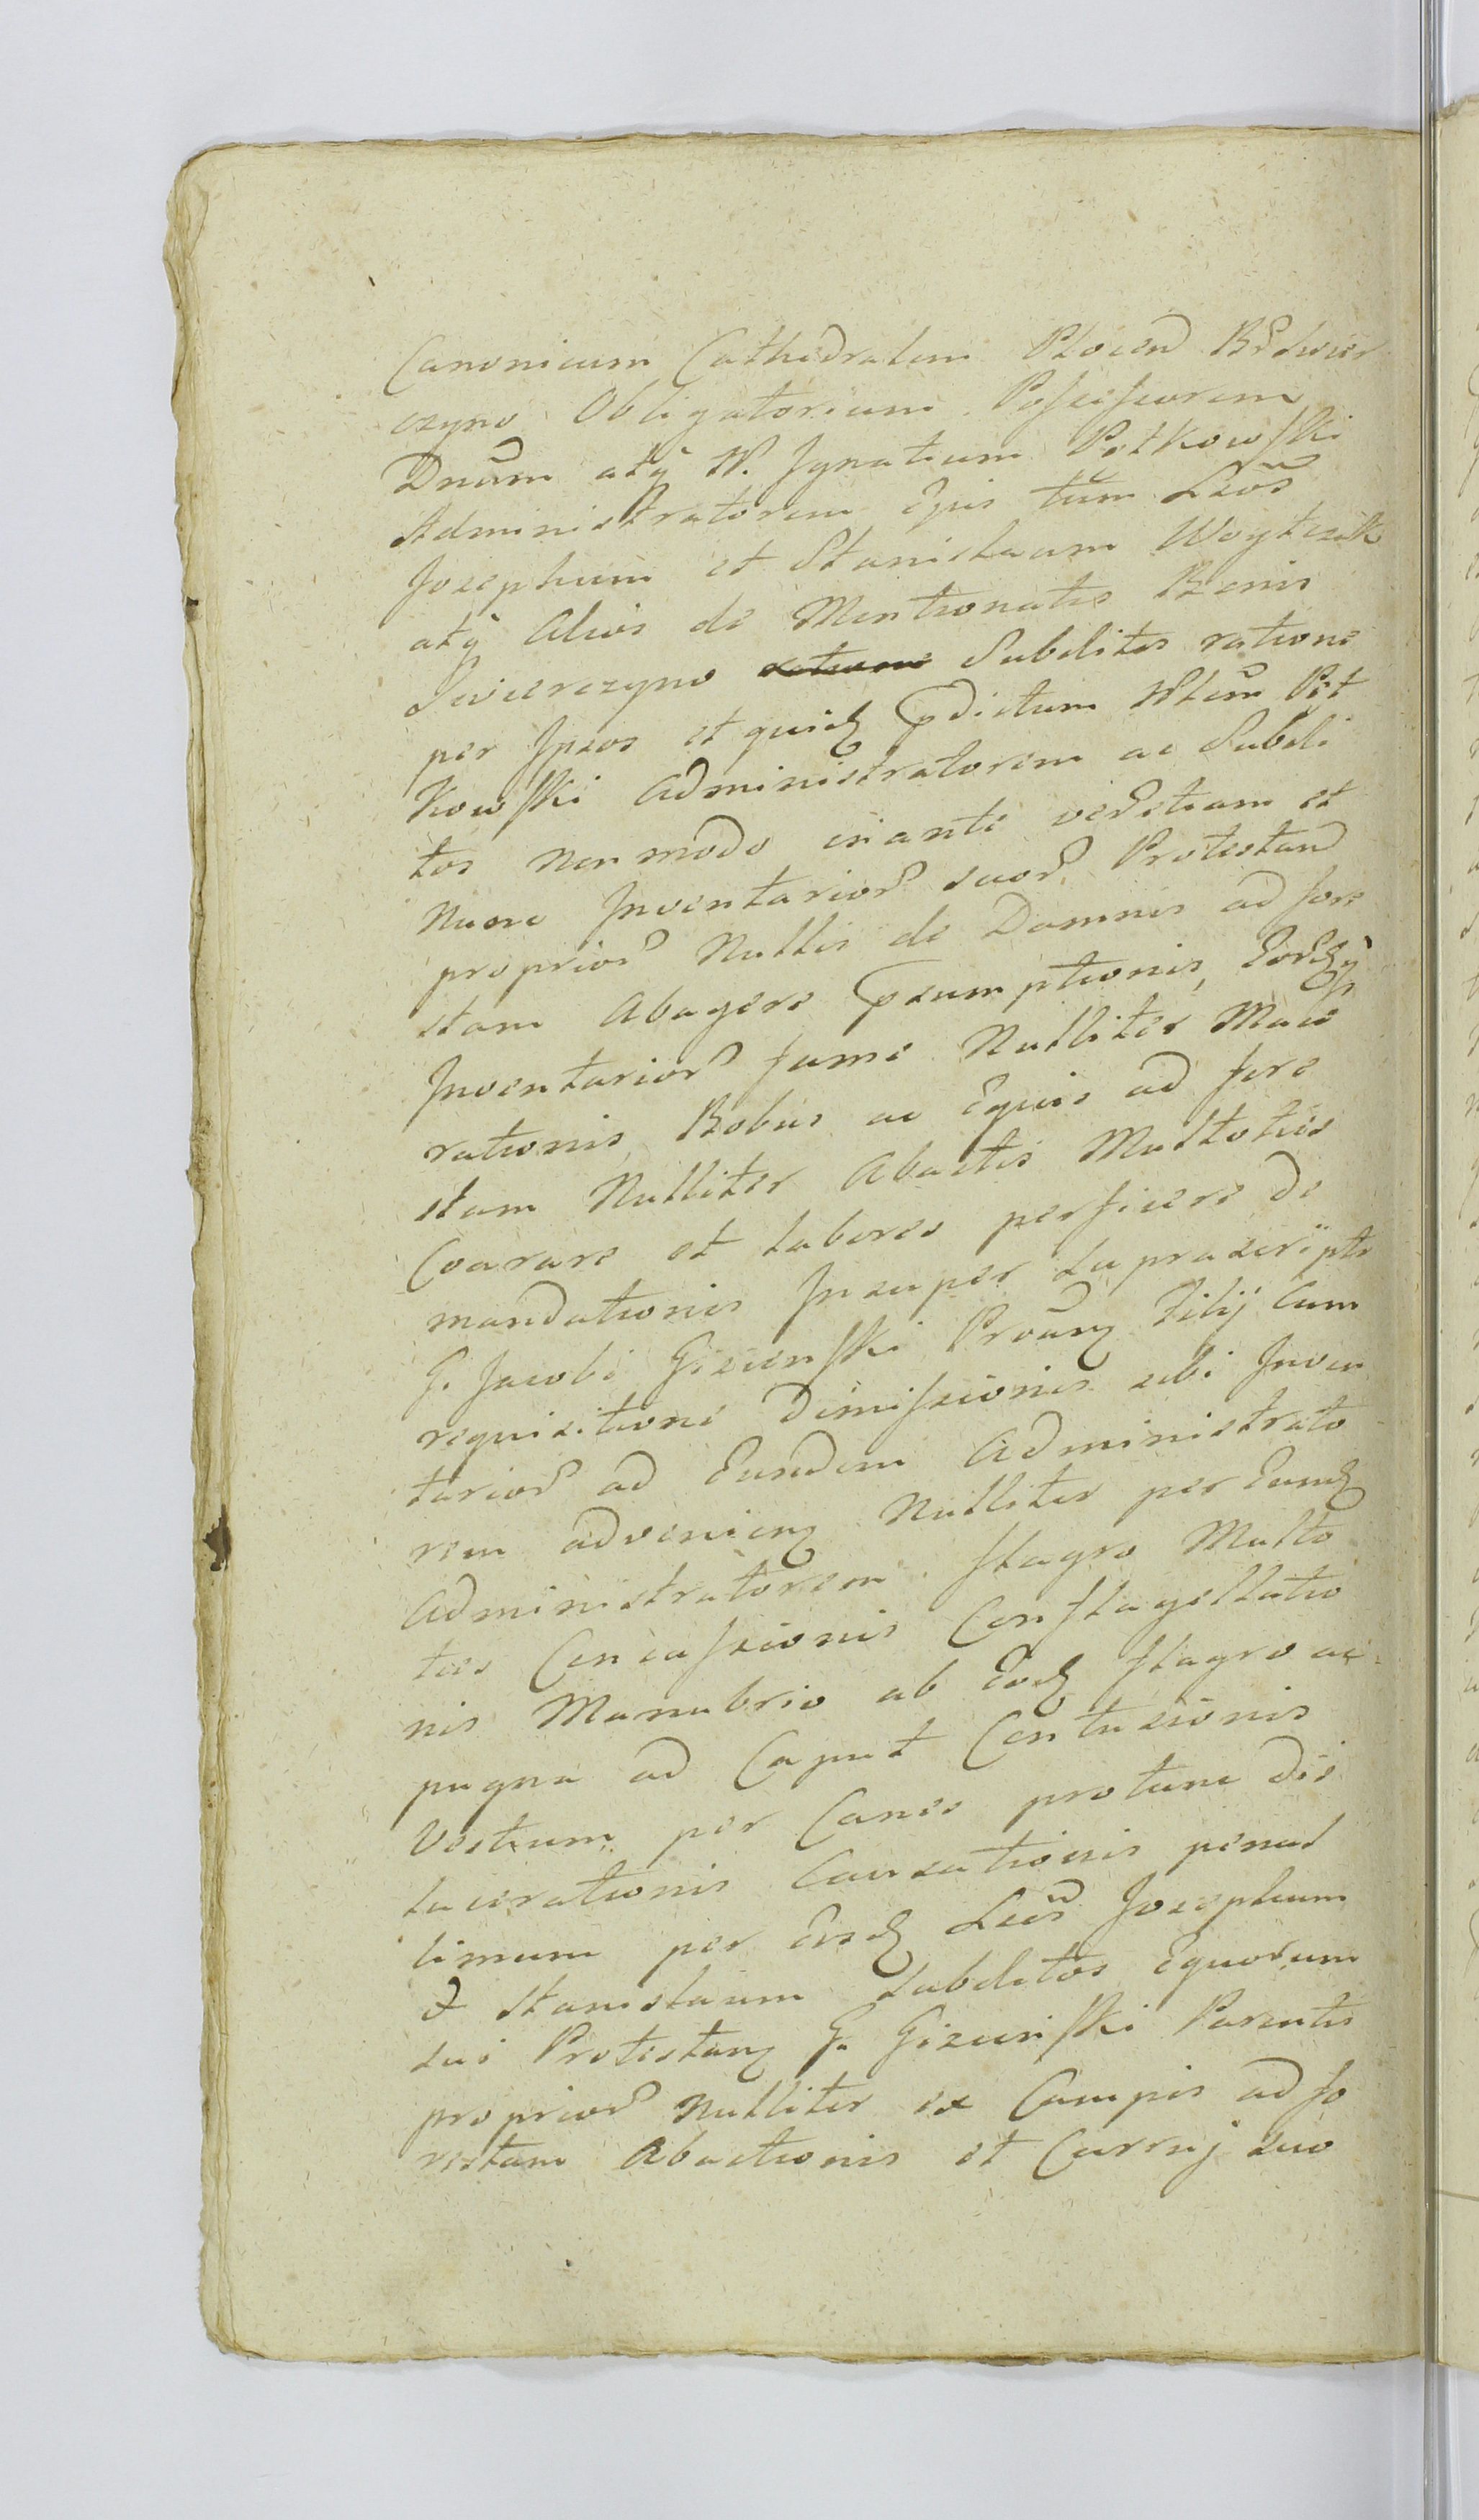 Canonicum Cathedralem Plocen Br Swier
czyno Obligatorium Possessorem
Dnum atq W. Ignatium Petkowski
Administratorem Ejus tum Lbos
Josephum et Stanislaum Woytczik
atq Alios de Mentionatis Bonis
Swierczyno Subditos ratione
per Ipsos et quid pdictum Pet
Kowski Administratorem ac Subdi
tos Non modo in ante verum etiam et
Nunc Inventarior suor Protestan
proprior Nullis de Damnis ad fore
stam Abagere psumptionis, Eordq
Inventarior fame Nulliter Mace
rationis, Bobus ac Equis ad fore
stam Nulliter Abactis Multoties
Coarare et labores perficere de
mandationis Insuper supraseripti
G. Jacobi Gizinski Protan Filij Cum
requisitione Dimissionis sibi Inven
tarior ad Eundem Administrato
rem advenien Nulliter per Eund
Administratorem flagro Multo
ties Concussionis Conflagellatio
nis Manubrio ab Eod flagro ac
pugna ad Caput Contusionis
Vestium per Canes protunc dis
lacerationis Causationis penul
timum per Eosd Lbos Josephum
& Stanislaum Subditos Equorum
sui Protestan G. Gizinski Parentis
proprior Nulliter ex Campis ad fo
restam Abactionis et Currui suo